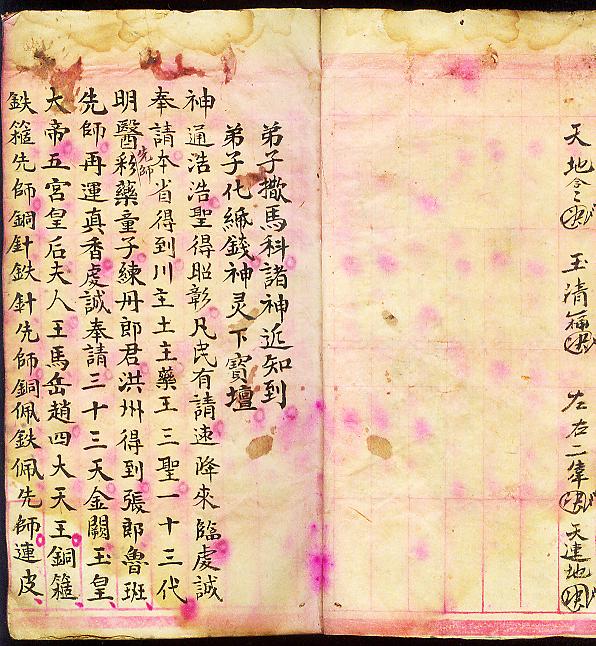 天地 玉清 左右二 天連地
弟子撒馬科諸神近知到
弟子化錢神灵下寶壇
神通浩浩聖得昭彰凡民有請速降來臨虔誠
奉請本省得到川主土主藥王三聖一十三代
明醫先師彩藥童子練丹郎君洪州得到張郎魯班
先師再運真香虔誠奉請三十三天金闕玉皇
大帝五宮皇后夫人王馬岳趙四大天王銅箍
鉄箍先師銅針鉄針先師銅佩鉄佩先師連皮